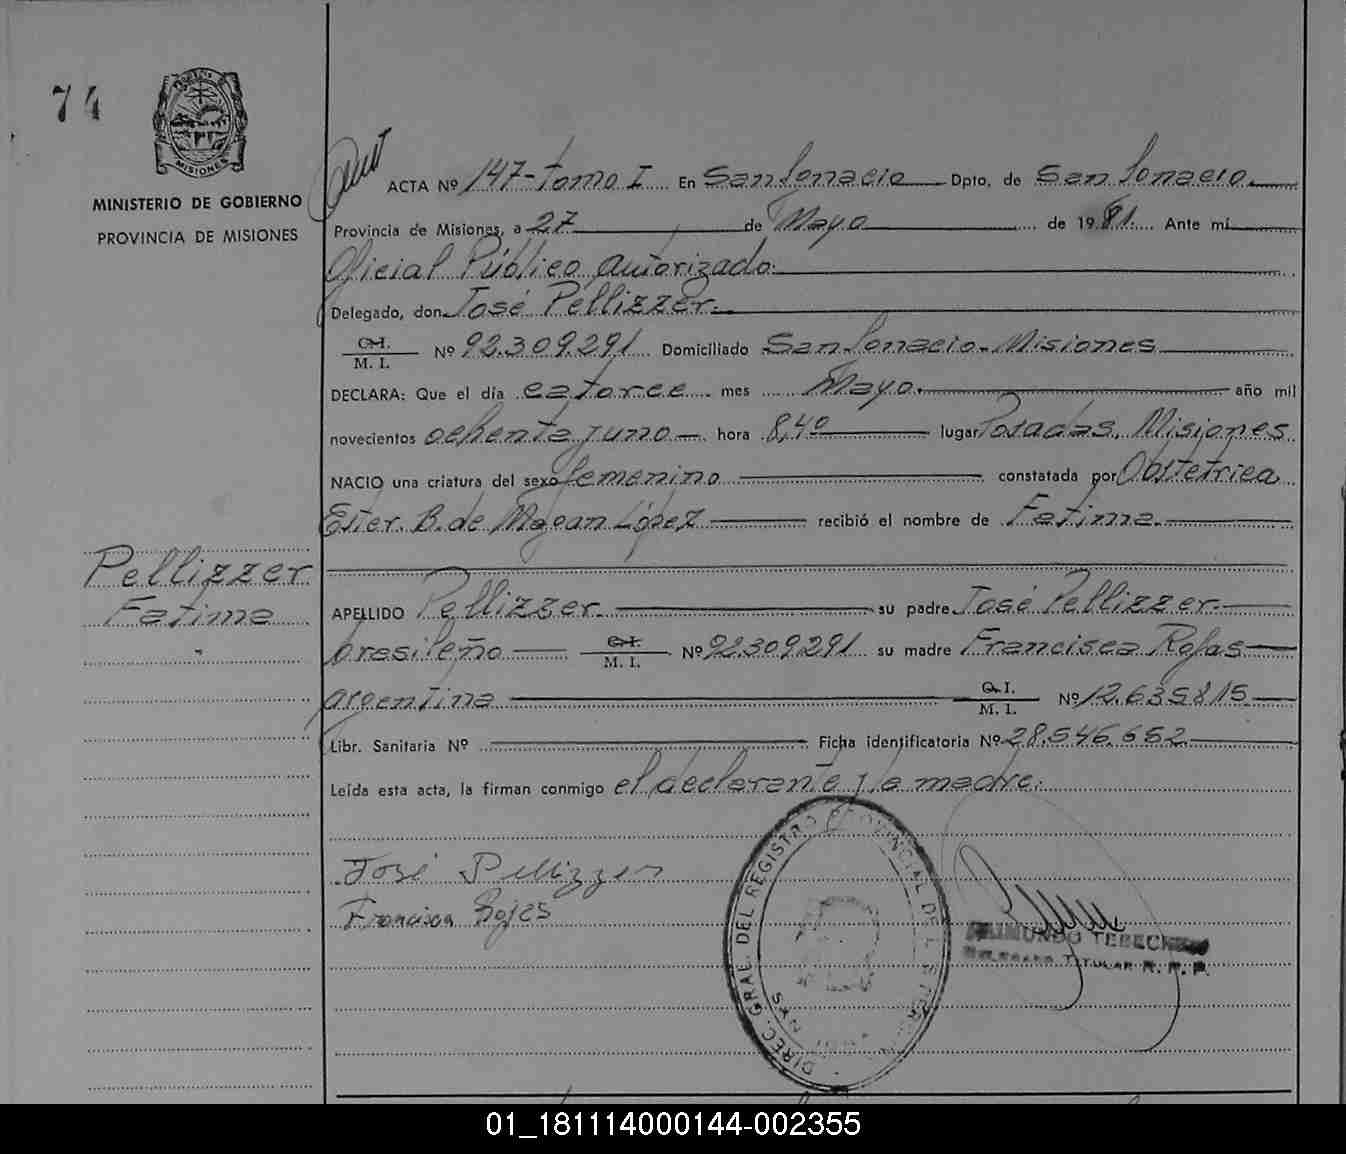 74
MISIONES
MINISTERIO DE GOBIERNO
PROVINCIA DE MISIONES
ACTA Nº 147-tomo I En San Ignacio Dpto. de San Ignacio
Provincia de Misiones, a 27 de Mayo de 1981. Ante mí
Oficial Público autorizado.
Delegado, don José Pellizzer.
C. I.
M. I. Nº 92.309.291 Domiciliado San Ignacio-Misiones
DECLARA: Que el día catorce mes Mayo. año mil
novecientos ochenta y uno hora 8,40 lugar Posadas. Misiones
NACIO una criatura del sexo femenino constatada por Obstetrica
Ester. B. de López recibió el nombre de Fatima
Pellizzer
Fatima
APELLIDO Pellizzer. su padre José Pellizzer.
brasileño C. I. M. I. Nº 92.309.291 su madre Francisca Rojas
argentina C. I. M. I. Nº 12.635815
Libr. Sanitaria Nº Ficha identificatoria Nº 28.546.652
Leída esta acta, la firman conmigo el declarante y la madre.
José Pellizzer
Francisca Rojas
DIREC. GRAL. DEL REGISTRO PROVINCIAL DE LAS PERSONAS
RAIMUNDO
DELEGADO TITULAR R. P. P.
01_181114000144-002355